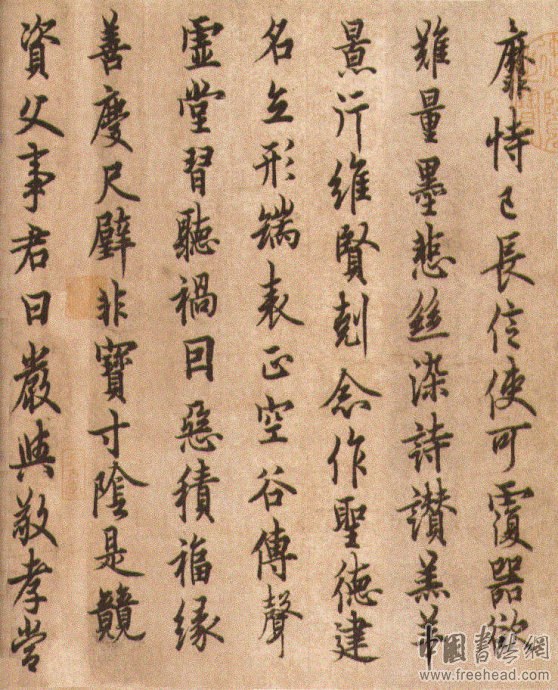 靡恃己長信使可覆器欲
難量墨悲絲染詩讃羔羊
景行維賢剋念作聖德建
名立形端表正空谷傳聲
虛堂習聽禍因惡積福緣
善慶尺璧非寶寸陰是競
資父事君曰嚴與敬孝當
中國書法網
www.freehead.com